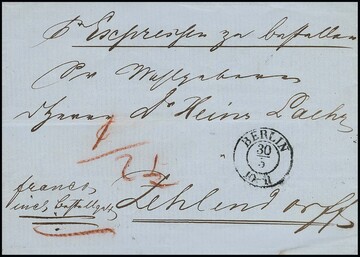 pr Expressen zu bestellen
Sr Wohlgeboren
Herrn Dr Heinr Laehr
1/2½
BERLIN
30/5
franco
incl. Bestellgeld
Zehlendorff